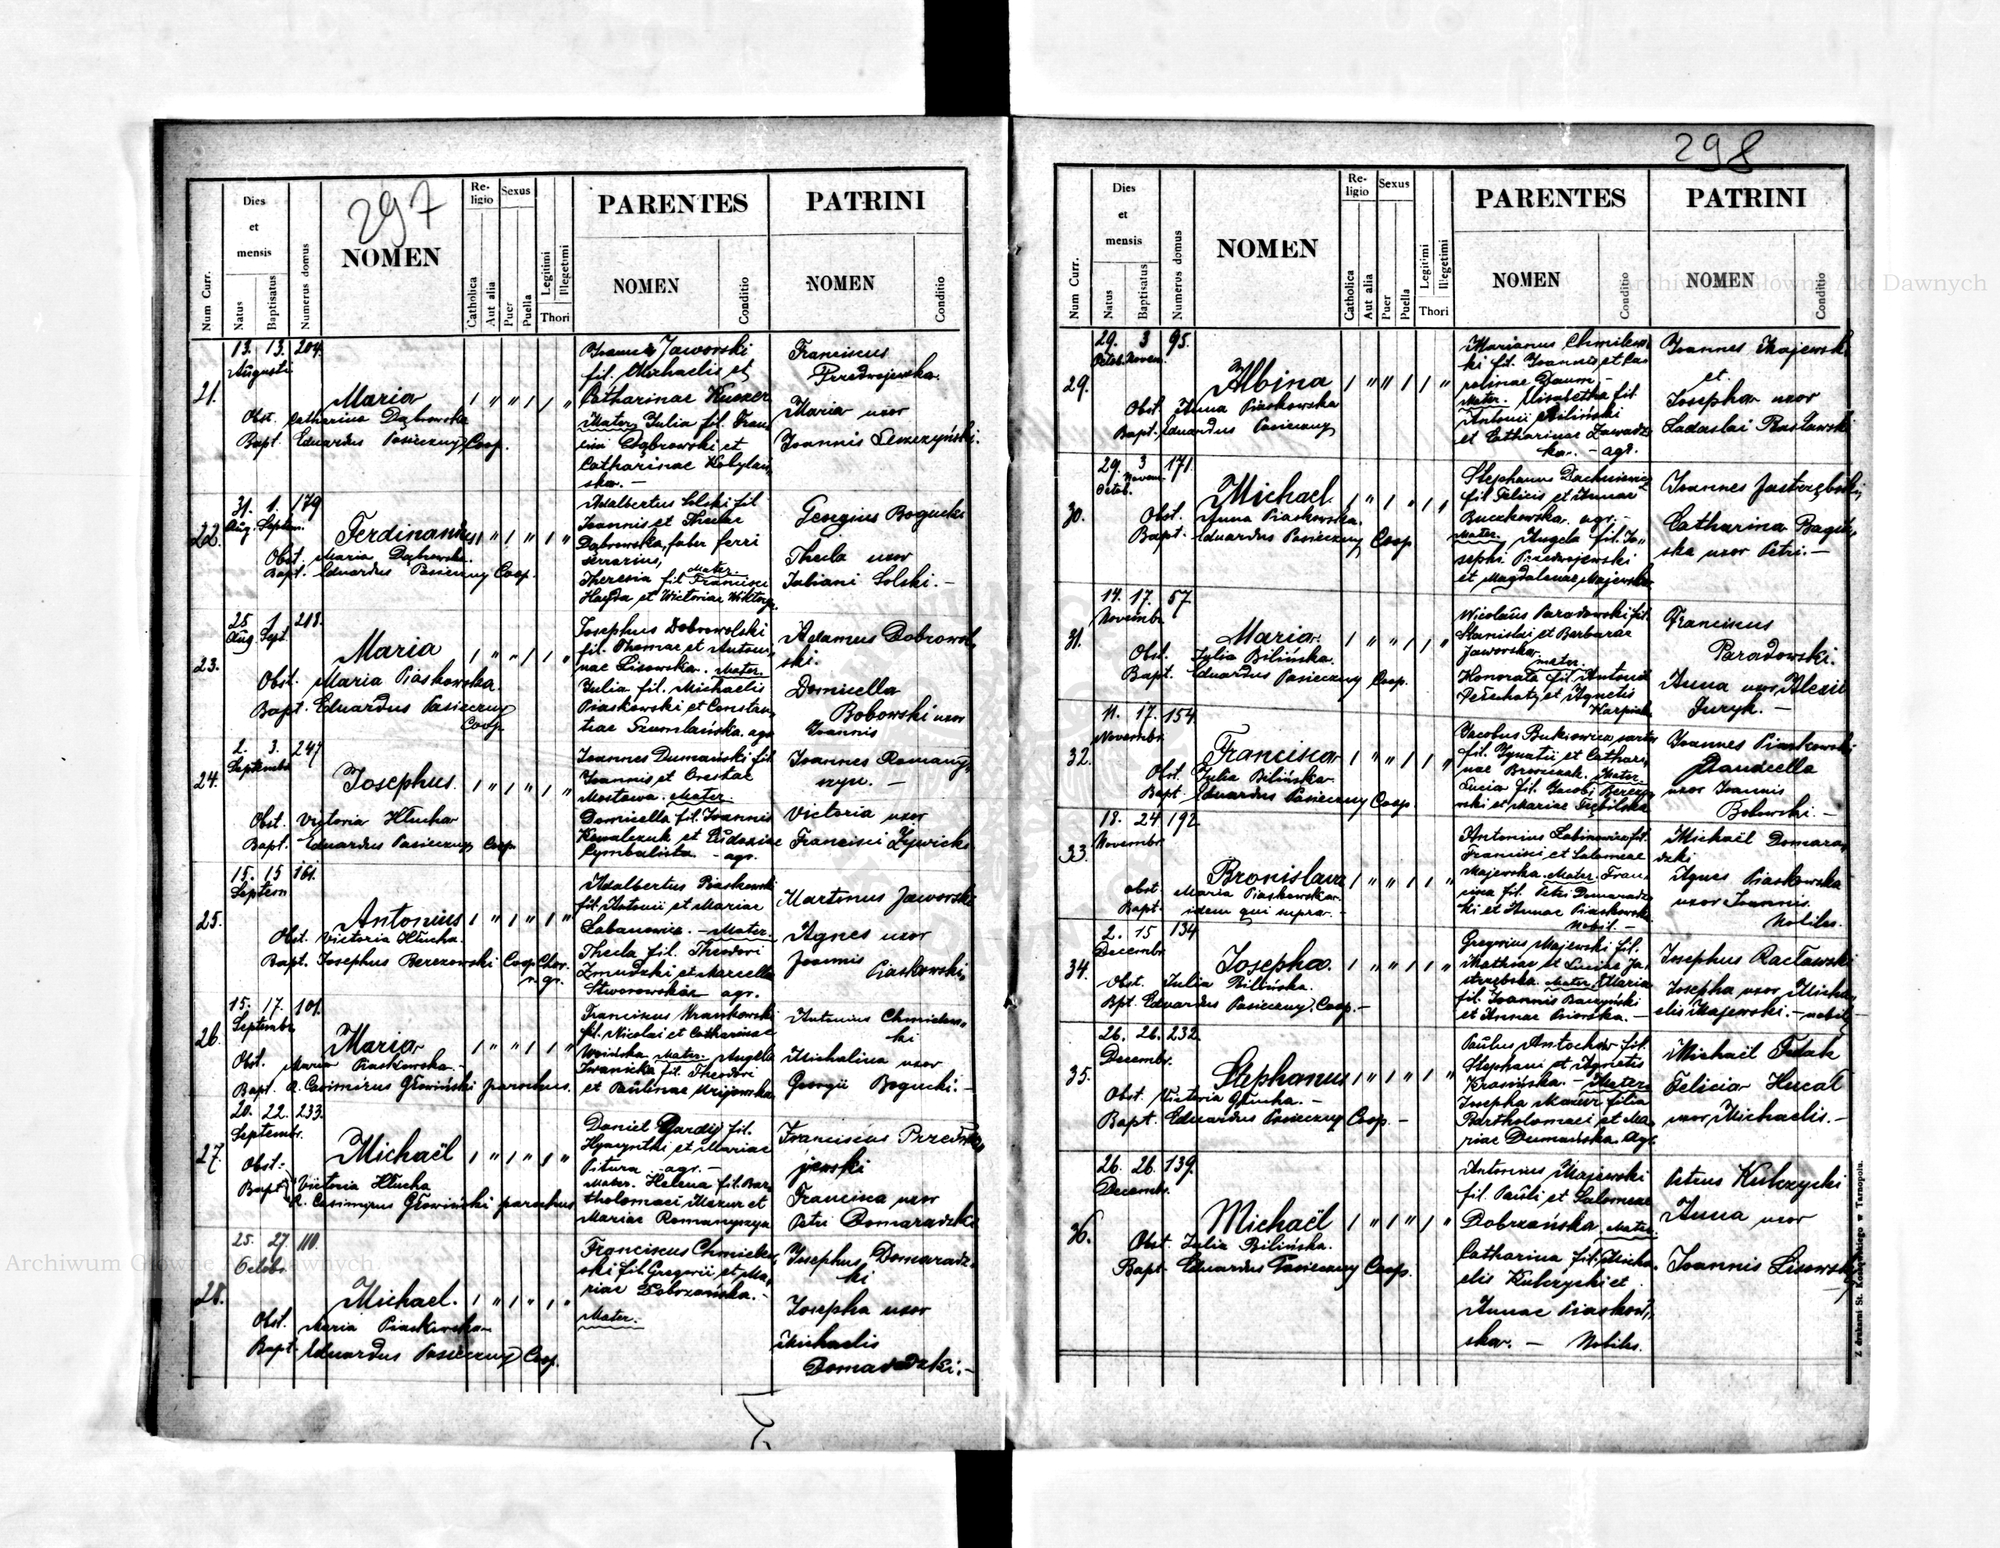 297
Num Curr.
Dies et mensis
Natus
Baptisatus
Numerus domus
NOMEN
Religio
Catholica
Aut alia
Sexus
Puer
Puella
Legitimi
Illegetimi
Thori
PARENTES
NOMEN
Conditio
PATRINI
NOMEN
Conditio
21.
13. 13. 204.
Augusti
Maria
Obst. Catharina Dąbrowska
Bapt. Eduardus Pasieczny Coop.
Jaworski
fil. Michaelis et
Catharinae Kuszer
Mater Julia fil. Fran
cisci Dąbrowski et
Catharinae Kobylań
ska. —
Franciscus
Przedwojewska.
Maria uxor
Joannis Leszczyński.
22.
31. 1. 179
Aug. Septem.
Ferdinandus
Obst. Maria Dąbrowska
Bapt. Eduardus Pasieczny Coop.
Adalbertus Solski fil
Joannis et Theclae
Dąbrowska, faber ferri
serrarius,
Mater.
Theresia fil Francisci
Hayda et Victoriae Wiktorya
Georgius Bogucki
Thecla uxor
Fabiani Solski. —
23.
25 1. 218.
Aug. Sept.
Maria
Obst. Maria Piaskowska.
Bapt. Eduardus Pasieczny
Coop.
Josephus Dobrowolski
fil. Thomae et Anton
nae Lisowska. Mater.
Julia fil. Michaelis
Piaskowski et Constan
tiae Szumlańska. agr.
Adamus Dobrowol
ski.
Domicella
Bobowski uxor
Joannis
24.
2. 3. 247
Septembr.
Josephus.
Obst. Victoria Hlucha
Bapt. Eduardus Pasieczny Coop.
Joannes Dumański fil
Joannis et Crestae
Mostowa. Mater.
Domicella fil. Joannis
Kowalczuk et Eudoxiae
Cymbalista — agr.
Joannes Romany
szyn. —
Victoria uxor
Francisci Żywicki
25.
15. 15 161.
Septem
Antonius
Obst. Victoria Hlucha.
Bapt. Josephus Berezowski Coop. Chor.
r. gr.
Adalbertus Piaskowski
fil. Antonii et Mariae
Labanowicz. — Mater.
Thecla fil. Theodori
Żmudzki et Marcella
Stworowskiae agr.
Martinus Jaworski
Agnes uxor
Joannis
Piaskowski.
26.
15. 17. 101.
Septembr.
Maria
Obst. Maria Piaskowska. —
Bapt. R. Casimirus Głowiński parochus.
Franciscus Wrankowski
fil. Nicolai et Catharinae
Woińska Mater. Angela
Iwanicka fil. Theodori
et Paulinae
Antonius Chmielew
ski
Michalina uxor
Georgii Bogucki. —
27.
20. 22. 233.
Septembr.
Michaël
Obst.
Bapt. Victoria Hlucha
R. Casimirus Głowiński parochus
Daniel Gardy fil.
Hyacynthi et Mariae
Pitura. agr. —
Mater. Helena fil. Bar
tholomaei Mazur et
Mariae Romanyszyn
Franciscus Przedwo
jewski
Francisca uxor
Petri Domaradzki
28.
25. 27 110.
Octobr.
Michael.
Obst. Maria Piaskowska
Bapt. Eduardus Pasieczny Coop.
Franciscus Chmielew
ski fil. Gregorii et Ma
riae Dobrzańska. —
Mater.
Josephus Domaradz
ki
Josepha uxor
Michaelis
Domaradzki. —
298
Num Curr.
Dies et mensis
Natus
Baptisatus
Numerus domus
NOMEN
Religio
Catholica
Aut alia
Sexus
Puer
Puella
Legitimi
Illegetimi
Thori
PARENTES
NOMEN
Conditio
PATRINI
NOMEN
Conditio
29.
29. 3 95.
Octob. Novem.
Albina
Obst. Anna Piaskowska
Bapt. Eduardus Pasieczny
Marianus Chmilews
ki fil. Joannis et Ca
rolinae Daum —
Mater. Elisabetha fil
Antonii Biliński
et Catharinae Zawadz
ka. — agr.
Joannes Majewski
et
Josepha uxor
Ladaslai Racławski
30.
29. 3 171.
Octob. Novem.
Michael.
Obst. Anna Piaskowska.
Bapt. Eduardus Pasieczny Coop.
Stephanus Dachniewicz
fil Felicis et Annae
Buczkowska agr. —
Mater. Angela fil. Jo
sephi Przedwojewski
et Magdalenae Majewska
Joannes Jastrzębski,
Catharina Bagiń
ska uxor Petri. —
31.
14. 17. 57.
Novembr.
Maria.
Obst. Julia Bilińska.
Bapt. Eduardus Pasieczny Coop.
Nicolaus Paradowski fil.
Stanislai et Barbarae
Jaworska.
Mater.
Honorata fil. Antonii
et Agnetis
Karpiak
Franciscus
Paradowski.
Anna uxor Alexii
Juryk. —
32.
11. 17. 154.
Novembr.
Francisca
Obst. Julia Bilińska.
Bapt. Eduardus Pasieczny Coop.
Jacobus Bukiewicz sartor
fil. Ignatii et Cathari
nae Mater.
Lucia fil. Jacobi Berezow
ski et Mariae Trębilska
Joannes Piaskowski
uxor Joannis
Bobowski. —
33.
18. 24 192.
Novembr.
Bronislava
Obst. Maria Piaskowska.
Bapt. idem qui supra. —
Antonius Labinowicz fil.
Francisci et Salomeae
Majewska. Mater. Fran
cisca fil. Petri Domaradz
ki et Annae Piaskowska
Nobil. —
Michaël Domara
dzki
Agnes Piaskowska
uxor Joannis.
Nobiles.
34.
2. 15 134
Decembr.
Josepha.
Obst. Julia Bilińska.
Bpt. Eduardus Pasieczny Coop. —
Gregorius Majewski fil.
Mathiae et Luciae Ja
strzębska. Mater. Maria
fil. Joannis Baczyński
et Annae Piorska. —
Josephus Racławski
Josepha uxor Micha
elis Majewski. — nobil.
35.
26. 26. 232.
Decembr.
Stephanus
Obst. Victoria Hlucha. —
Bapt. Eduardus Pasieczny Coop. —
Paulus Antochów fil.
Stephani et Agnetis
Krasińska. — Mater
Josepha Mazur filia
Bartholomaei et Ma
riae Dumańska. Agr.
Michaël Fedak
Felicia Hucał
uxor Michaelis. —
36.
26. 26. 139.
Decembr.
Michaël
Obst. Julia Bilińska.
Bapt. Eduardus Pasieczny Coop.
Antonius Majewski
fil. Pauli et Salomeae
Dobrzańska. Mater.
Catharina fil. Micha
elis Kulczycki et
Annae Piaskow
ska. — Nobiles.
Petrus Kulczycki
Anna uxor
Joannis Lisowski
Z drukarni St. Kossowskiego w Tarnopolu.
Archiwum Główne Akt Dawnych
Archiwum Główne Akt Dawnych